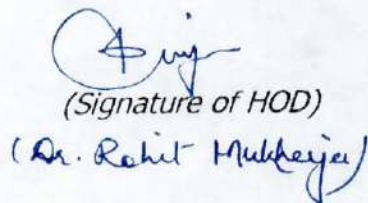 (Signature of HOD)
(Dr. Rohit Mukherjee)